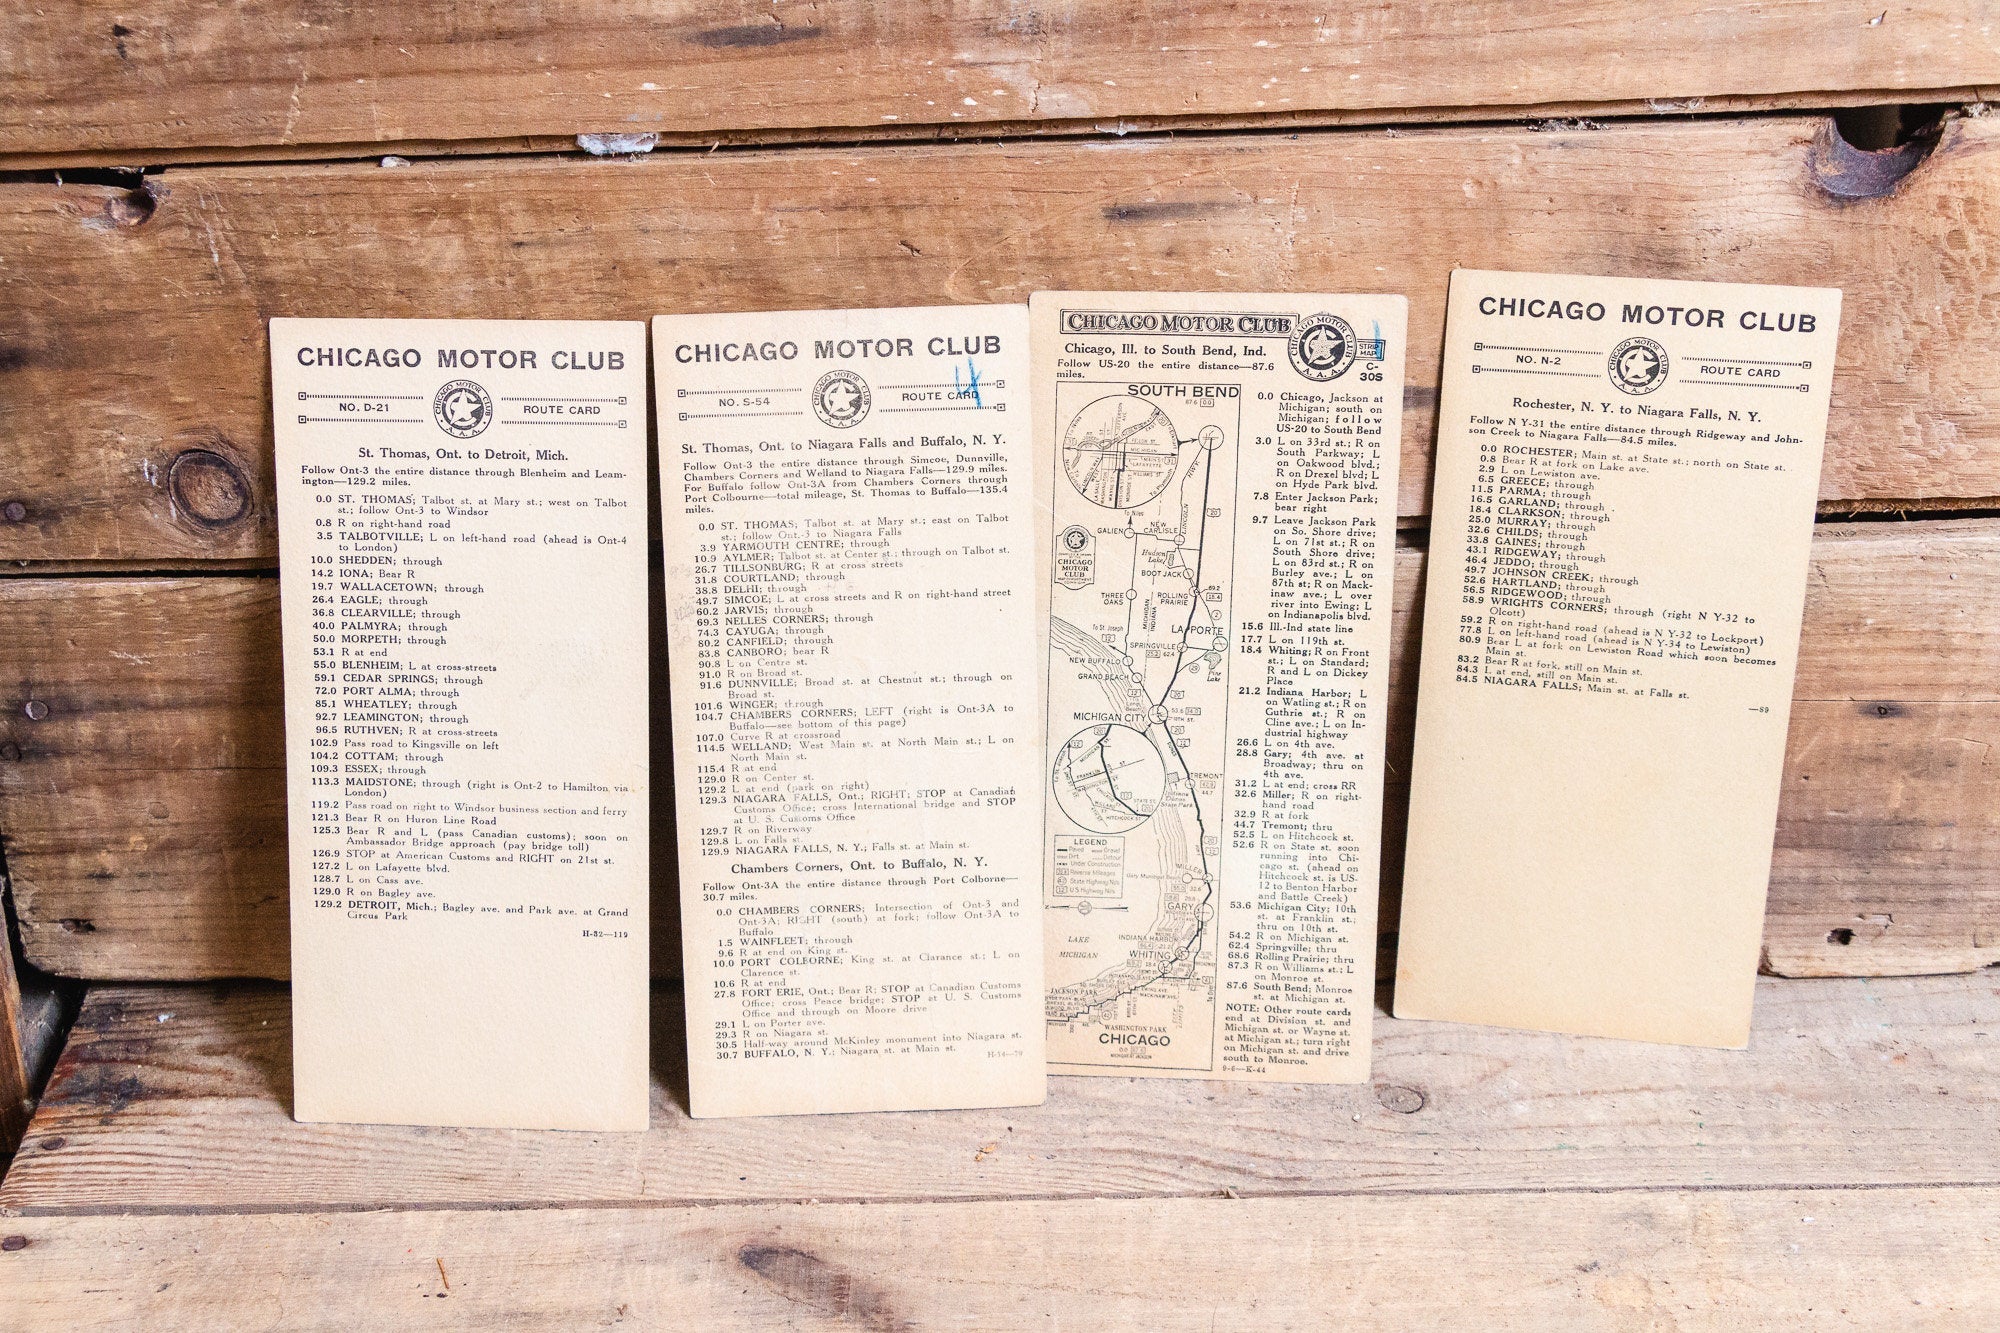 CHICAGO MOTOR CLUB
NO. D-21
CHICAGO MOTOR CLUB
A. A. A.
ROUTE CARD
St. Thomas, Ont. to Detroit, Mich.
Follow Ont-3 the entire distance through Blenheim and Leam-
ington—129.2 miles.
0.0 ST. THOMAS; Talbot st. at Mary st.; west on Talbot
st.; follow Ont-3 to Windsor
0.8 R on right-hand road
3.5 TALBOTVILLE; L on left-hand road (ahead is Ont-4
to London)
10.0 SHEDDEN; through
14.2 IONA; Bear R
19.7 WALLACETOWN; through
26.4 EAGLE; through
36.8 CLEARVILLE; through
40.0 PALMYRA; through
50.0 MORPETH; through
53.1 R at end
55.0 BLENHEIM; L at cross-streets
59.1 CEDAR SPRINGS; through
72.0 PORT ALMA; through
85.1 WHEATLEY; through
92.7 LEAMINGTON; through
96.5 RUTHVEN; R at cross-streets
102.9 Pass road to Kingsville on left
104.2 COTTAM; through
109.3 ESSEX; through
113.3 MAIDSTONE; through (right is Ont-2 to Hamilton via
London)
119.2 Pass road on right to Windsor business section and ferry
121.3 Bear R on Huron Line Road
125.3 Bear R and L (pass Canadian customs); soon on
Ambassador Bridge approach (pay bridge toll)
126.9 STOP at American Customs and RIGHT on 21st st.
127.2 L on Lafayette blvd.
128.7 L on Cass ave.
129.0 R on Bagley ave.
129.2 DETROIT, Mich.; Bagley ave. and Park ave. at Grand
Circus Park
H-32—119
CHICAGO MOTOR CLUB
NO. S-54
CHICAGO MOTOR CLUB
A. A. A.
ROUTE CARD
St. Thomas, Ont. to Niagara Falls and Buffalo, N. Y.
Follow Ont-3 the entire distance through Simcoe, Dunnville,
Chambers Corners and Welland to Niagara Falls—129.9 miles.
For Buffalo follow Ont-3A from Chambers Corners through
Port Colbourne—total mileage, St. Thomas to Buffalo—135.4
miles.
0.0 ST. THOMAS; Talbot st. at Mary st.; east on Talbot
st.; follow Ont.-3 to Niagara Falls
3.9 YARMOUTH CENTRE; through
10.9 AYLMER; Talbot st. at Center st.; through on Talbot st.
26.7 TILLSONBURG; R at cross streets
31.8 COURTLAND; through
38.8 DELHI; through
49.7 SIMCOE; L at cross streets and R on right-hand street
60.2 JARVIS; through
69.3 NELLES CORNERS; through
74.3 CAYUGA; through
80.2 CANFIELD; through
83.8 CANBORO; bear R
90.8 L on Centre st.
91.0 R on Broad st.
91.6 DUNNVILLE; Broad st. at Chestnut st.; through on
Broad st.
101.6 WINGER; through
104.7 CHAMBERS CORNERS; LEFT (right is Ont-3A to
Buffalo—see bottom of this page)
107.0 Curve R at crossroad
114.5 WELLAND; West Main st. at North Main st.; L on
North Main st.
115.4 R at end
129.0 R on Center st.
129.2 L at end (park on right)
129.3 NIAGARA FALLS, Ont.; RIGHT; STOP at Canadian
Customs Office; cross International bridge and STOP
at U. S. Customs Office
129.7 R on Riverway
129.8 L on Falls st.
129.9 NIAGARA FALLS, N. Y.; Falls st. at Main st.
Chambers Corners, Ont. to Buffalo, N. Y.
Follow Ont-3A the entire distance through Port Colborne—
30.7 miles.
0.0 CHAMBERS CORNERS; Intersection of Ont-3 and
Ont-3A; RIGHT (south) at fork; follow Ont-3A to
Buffalo
1.5 WAINFLEET; through
9.6 R at end on King st.
10.0 PORT COLBORNE; King st. at Clarence st.; L on
Clarence st.
10.6 R at end
27.8 FORT ERIE, Ont.; Bear R; STOP at Canadian Customs
Office; cross Peace bridge; STOP at U. S. Customs
Office and through on Moore drive
29.1 L on Porter ave.
29.3 R on Niagara st.
30.5 Half-way around McKinley monument into Niagara st.
30.7 BUFFALO, N. Y.; Niagara st. at Main st.
H-34—79
CHICAGO MOTOR CLUB
CHICAGO MOTOR CLUB
A. A. A.
STRIP
MAP
C-
30S
Chicago, Ill. to South Bend, Ind.
Follow US-20 the entire distance—87.6
miles.
SOUTH BEND
87.6 0.0
MICHIGAN
To Niles
GALIEN
NEW
CARLISLE
LINCOLN
HWY.
20
CHICAGO
MOTOR
CLUB
Hudson
Lake
BOOT JACK
THREE
OAKS
ROLLING
PRAIRIE
69.2
18.4
MICHIGAN
INDIANA
To St. Joseph
12
LA PORTE
SPRINGVILLE
25.2 62.4
Pine
Lake
NEW BUFFALO
GRAND BEACH
MICHIGAN CITY
53.6 34.0
10TH. ST.
FRANKLIN
STATE ST.
HITCHCOCK ST.
TREMONT
44.7
Indiana
Dunes
State Park
LEGEND
Paved Gravel
Dirt Detour
Under Construction
Reverse Mileages
State Highway Nos.
U.S Highway Nos.
MILLER
32.6
GARY
28.8
LAKE
MICHIGAN
INDIANA HARBOR
21.2
WHITING
18.4
JACKSON PARK
WASHINGTON PARK
CHICAGO
0.0 87.6
MICHIGAN AT JACKSON
0.0 Chicago, Jackson at
Michigan; south on
Michigan; follow
US-20 to South Bend
3.0 L on 33rd st.; R on
South Parkway; L
on Oakwood blvd.;
R on Drexel blvd; L
on Hyde Park blvd.
7.8 Enter Jackson Park;
bear right
9.7 Leave Jackson Park
on So. Shore drive;
L on 71st st.; R on
South Shore drive;
L on 83rd st.; R on
Burley ave.; L on
87th st; R on Mack-
inaw ave.; L over
river into Ewing; L
on Indianapolis blvd.
15.6 Ill.-Ind state line
17.7 L on 119th st.
18.4 Whiting; R on Front
st.; L on Standard;
R and L on Dickey
Place
21.2 Indiana Harbor; L
on Watling st.; R on
Guthrie st.; R on
Cline ave.; L on In-
dustrial highway
26.6 L on 4th ave.
28.8 Gary; 4th ave. at
Broadway; thru on
4th ave.
31.2 L at end; cross RR
32.6 Miller; R on right-
hand road
32.9 R at fork
44.7 Tremont; thru
52.5 L on Hitchcock st.
52.6 R on State st. soon
running into Chi-
cago st. (ahead on
Hitchcock st. is US-
12 to Benton Harbor
and Battle Creek)
53.6 Michigan City; 10th
st. at Franklin st.;
thru on 10th st.
54.2 R on Michigan st.
62.4 Springville; thru
68.6 Rolling Prairie; thru
87.3 R on Williams st.; L
on Monroe st.
87.6 South Bend; Monroe
st. at Michigan st.
NOTE: Other route cards
end at Division st. and
Michigan st. or Wayne st.
at Michigan st.; turn right
on Michigan st. and drive
south to Monroe.
9-6—K-44
CHICAGO MOTOR CLUB
NO. N-2
CHICAGO MOTOR CLUB
A. A. A.
ROUTE CARD
Rochester, N. Y. to Niagara Falls, N. Y.
Follow N Y-31 the entire distance through Ridgeway and John-
son Creek to Niagara Falls—84.5 miles.
0.0 ROCHESTER; Main st. at State st.; north on State st.
0.8 Bear R at fork on Lake ave.
2.9 L on Lewiston ave.
6.5 GREECE; through
11.5 PARMA; through
16.5 GARLAND; through
18.4 CLARKSON; through
25.0 MURRAY; through
32.6 CHILDS; through
33.8 GAINES; through
43.1 RIDGEWAY; through
46.4 JEDDO; through
49.7 JOHNSON CREEK; through
52.6 HARTLAND; through
56.5 RIDGEWOOD; through
58.9 WRIGHTS CORNERS; through (right N Y-32 to
Olcott)
59.2 R on right-hand road (ahead is N Y-32 to Lockport)
77.8 L on left-hand road (ahead is N Y-34 to Lewiston)
80.9 Bear L at fork on Lewiston Road which soon becomes
Main st.
83.2 Bear R at fork, still on Main st.
84.3 L at end, still on Main st.
84.5 NIAGARA FALLS; Main st. at Falls st.
—89